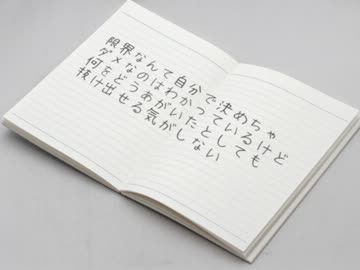 限界なんて自分で決めちゃ
ダメなのはわかっているけど
何をどうあがいたとしても
抜け出せる気がしない